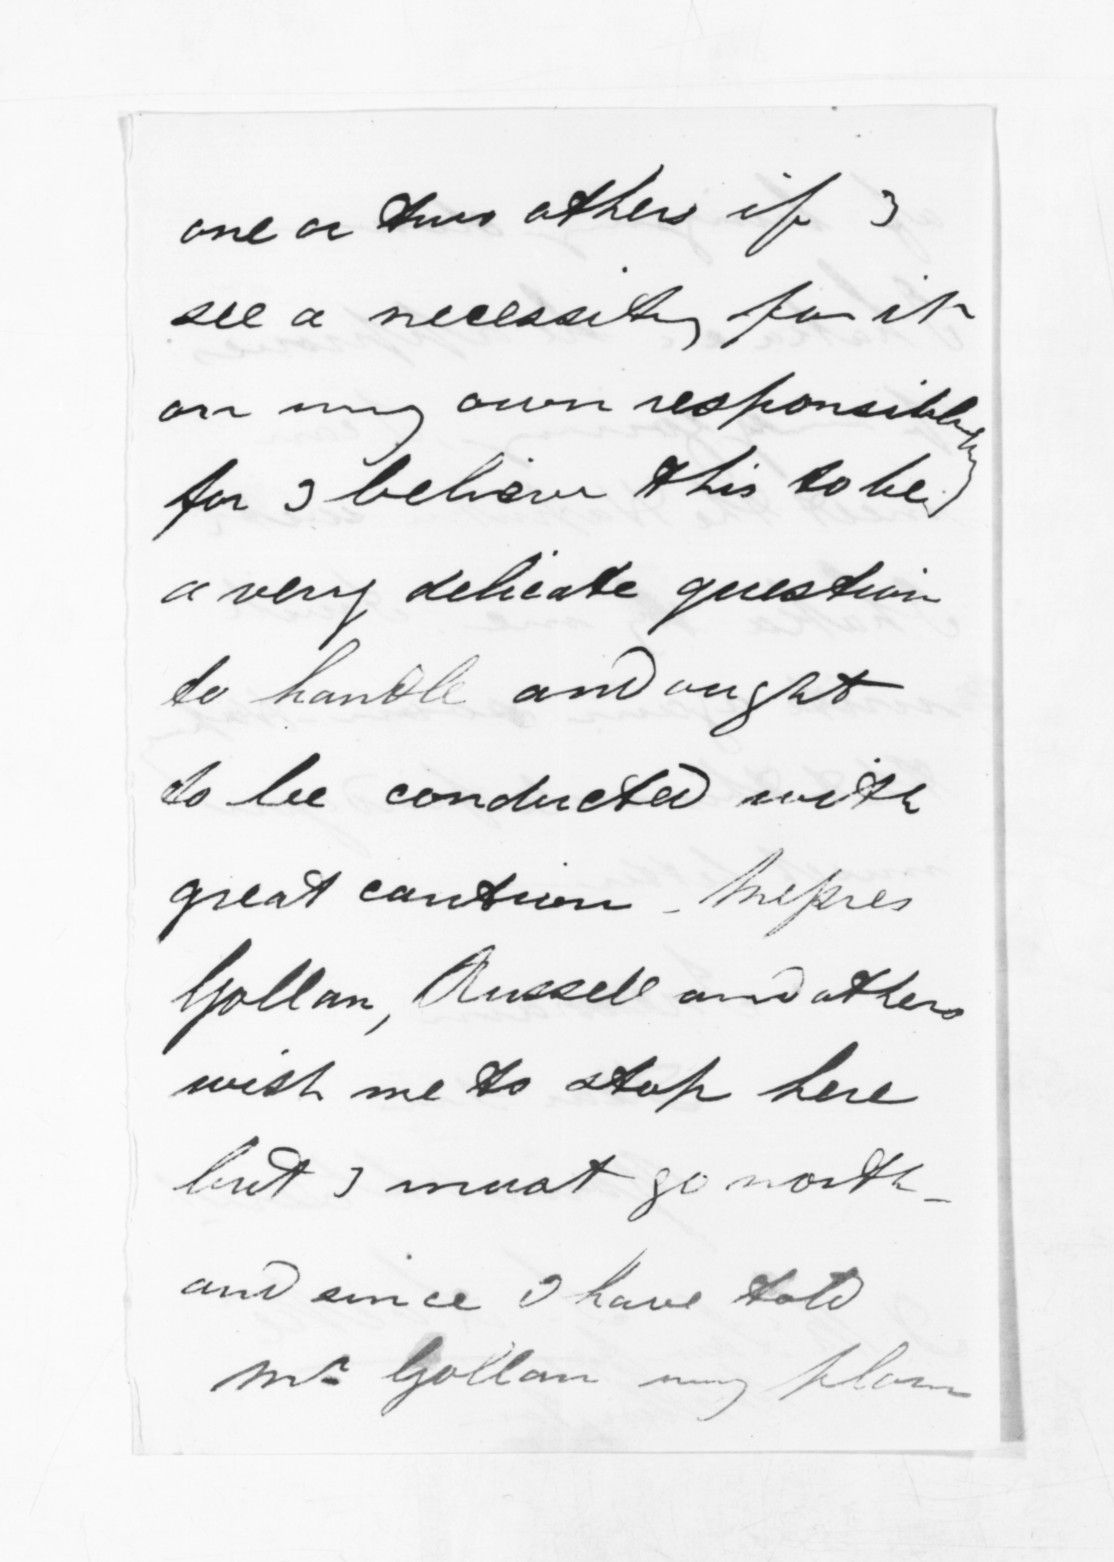 one or two others if I
see a necessity for it
on my own responsibility
for I believe this to be
a very delicate question
to handle and ought
to be conducted with
great caution - Messres
Gollan, Russell and others
wish me to stop here
but I must go north -
and since I have told
Mr Gollan my plans